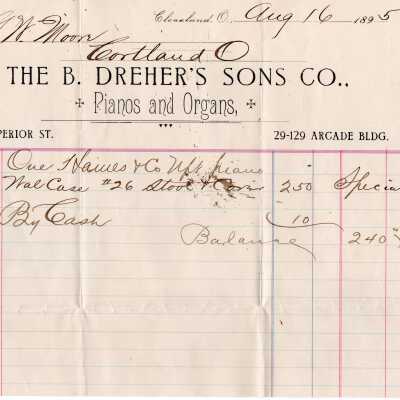 Cleveland, O. Aug 16 1895
W. Moon
Cortland O
THE B. DREHER'S SONS CO.,
Pianos and Organs,
PERIOR ST. 29-129 ARCADE BLDG.
One Haines & Co Upt piano
Wal Case #26 Stool & Cover 250 Specia
By Cash 10
Balance 240